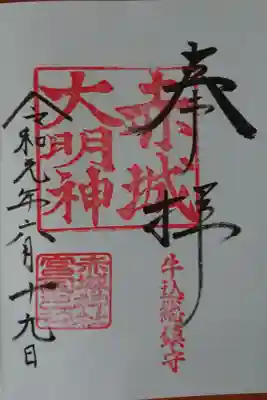 奉拝
赤城
大明神
牛込総鎮守
令和元年六月十九日